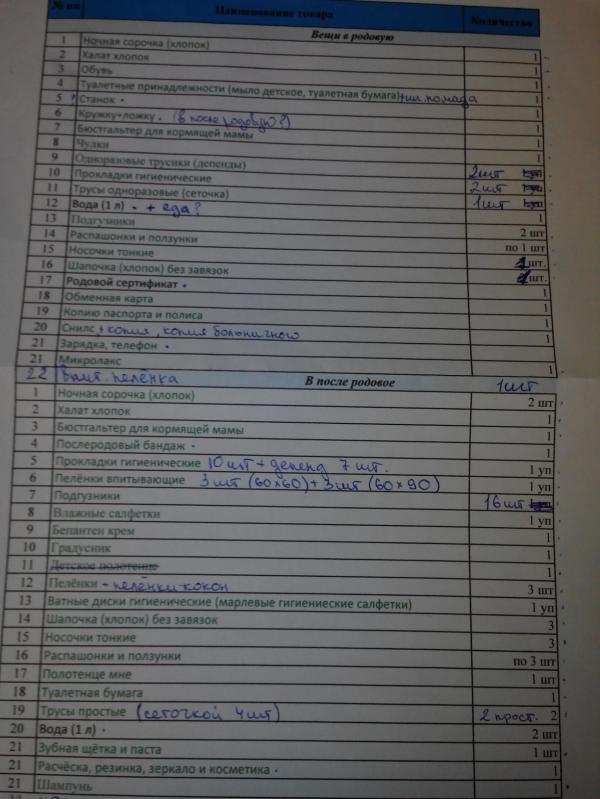 № пп Наименование товара Количество
Вещи в родовую
1 Ночная сорочка (хлопок) 1
2 Халат хлопок 1
3 Обувь 1
4 Туалетные принадлежности (мыло детское, туалетная бумага)+гиг. помада 1
5 Станок 1
6 Кружку+ложку. (в после родовую?) 1
7 Бюстгальтер для кормящей мамы 1
8 Чулки 1
9 Одноразовые трусики (депенды) 1
10 Прокладки гигиенические 2шт
11 Трусы одноразовые (сеточка) 2шт
12 Вода (1 л) + еда? 1шт
13 Подгузники 1
14 Распашонки и ползунки 2 шт
15 Носочки тонкие по 1 шт
16 Шапочка (хлопок) без завязок 1шт.
17 Родовой сертификат 1шт.
18 Обменная карта 1
19 Копию паспорта и полиса 1
20 Снилс + копия, копия больничного 1
21 Зарядка, телефон
21 Микролакс 1
22 впит. пелёнка 1шт
В после родовое
1 Ночная сорочка (хлопок) 2 шт
2 Халат хлопок 1
3 Бюстгальтер для кормящей мамы 1
4 Послеродовый бандаж 1
5 Прокладки гигиенические 10шт + депенд 7 шт. 1 уп
6 Пелёнки впитывающие 3шт (60х60)+3шт (60х90) 1 уп
7 Подгузники 16шт
8 Влажные салфетки 1 уп
9 Бепантен крем 1
10 Градусник 1
11 Детское полотенце 1
12 Пелёнки + пелёнки-кокон 3 шт
13 Ватные диски гигиенические (марлевые гигиениеские салфетки) 1 уп
14 Шапочка (хлопок) без завязок 3
15 Носочки тонкие 3
16 Распашонки и ползунки по 3 шт
17 Полотенце мне 1 шт
18 Туалетная бумага 1
19 Трусы простые (сеточкой 4шт) 2 прост. 2
20 Вода (1 л) 2 шт
21 Зубная щётка и паста 1 шт
21 Расчёска, резинка, зеркало и косметика 1
21 Шампунь 1